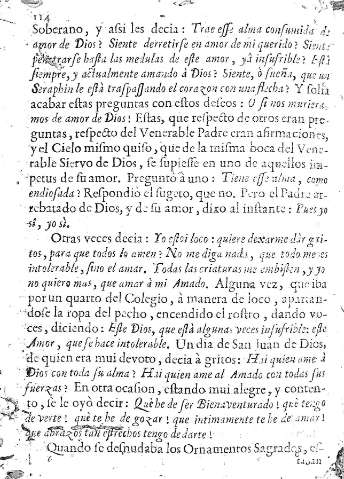 114
Soberano, y assi les decia: Trae esse alma consumida de
amor de Dios? Siente derretirse en amor de mi querido? Siente
penetrarse hasta las medulas de este amor, yà insufrible? Està
siempre, y actualmente amando à Dios? Siente, ò sueña, que un
Seraphin le està traspassando el corazon con una flecha? Y solia
acabar estas preguntas con estos deseos: O si nos murieramos
mos de amor de Dios! Estas, que respecto de otros eran pre-
guntas, respecto del Venerable Padre eran afirmaciones,
y el Cielo mismo quiso, que de la misma boca del Vene-
rable Siervo de Dios, se supiesse en uno de aquellos im-
petus de su amor. Preguntò à uno: Tiene esse alma, como
endiosada? Respondiò el sugeto, que no. Pero el Padre ar-
rebatado de Dios, y de su amor, dixo al instante: Pues yo
sì, yo sì.
Otras veces decia: Yo estoi loco: quiere dexarme dàr gri-
tos, para que todos lo amen? No me diga nada, que todo me es
intolerable, sino el amar. Todas las criaturas me embisten, y yo
no quiero mas, que amar à mi Amado. Alguna vez, que iba
por un quarto del Colegio, à manera de loco, apartan-
dose la ropa del pecho, encendido el rostro, dando vo-
ces, diciendo: Este Dios, que està algunas veces insufrible: este
Amor, que se hace intolerable. Un dia de San Juan de Dios,
de quien era mui devoto, decia à gritos: Hai quien ame à
Dios con toda su alma? Hai quien ame al Amado con todas sus
fuerzas? En otra ocasion, estando mui alegre, y conten-
to, se le oyò decir: Què he de ser Bienaventurado! què tengo
de verte! què te he de gozar! què intimamente te he de amar!
què abrazos tan estrechos tengo de darte!
Quando se desnudaba los Ornamentos Sagrados, es-